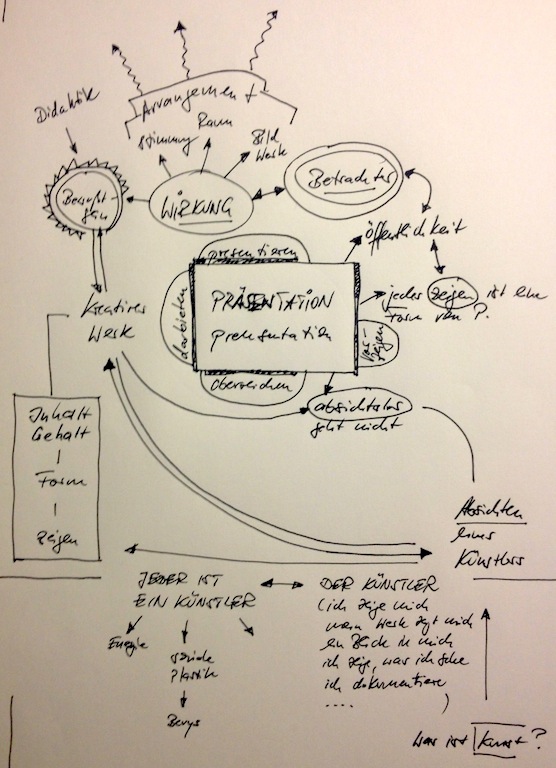 Arrangement
Didaktik
Stimmung
Raum
Bild
Werk
Bewußt-
sein
WIRKUNG
Betrachter
öffentlichkeit
präsentieren
darbieten
PRÄSENTATION
prehsentation
vor-
zeigen
überreichen
jedes zeigen ist eine
Form von ?
Kreatives
Werk
absichtslos
geht nicht
Inhalt
Gehalt
Form
zeigen
Absichten
eines
Künstlers
JEDER IST
EIN KÜNSTLER
DER KÜNSTLER
(ich zeige mich
mein Werk zeigt mich
ein Blick in mich
ich zeige, was ich sehe
ich dokumentiere
.... )
Energie
soziale
Plastik
Beuys
Was ist Kunst?